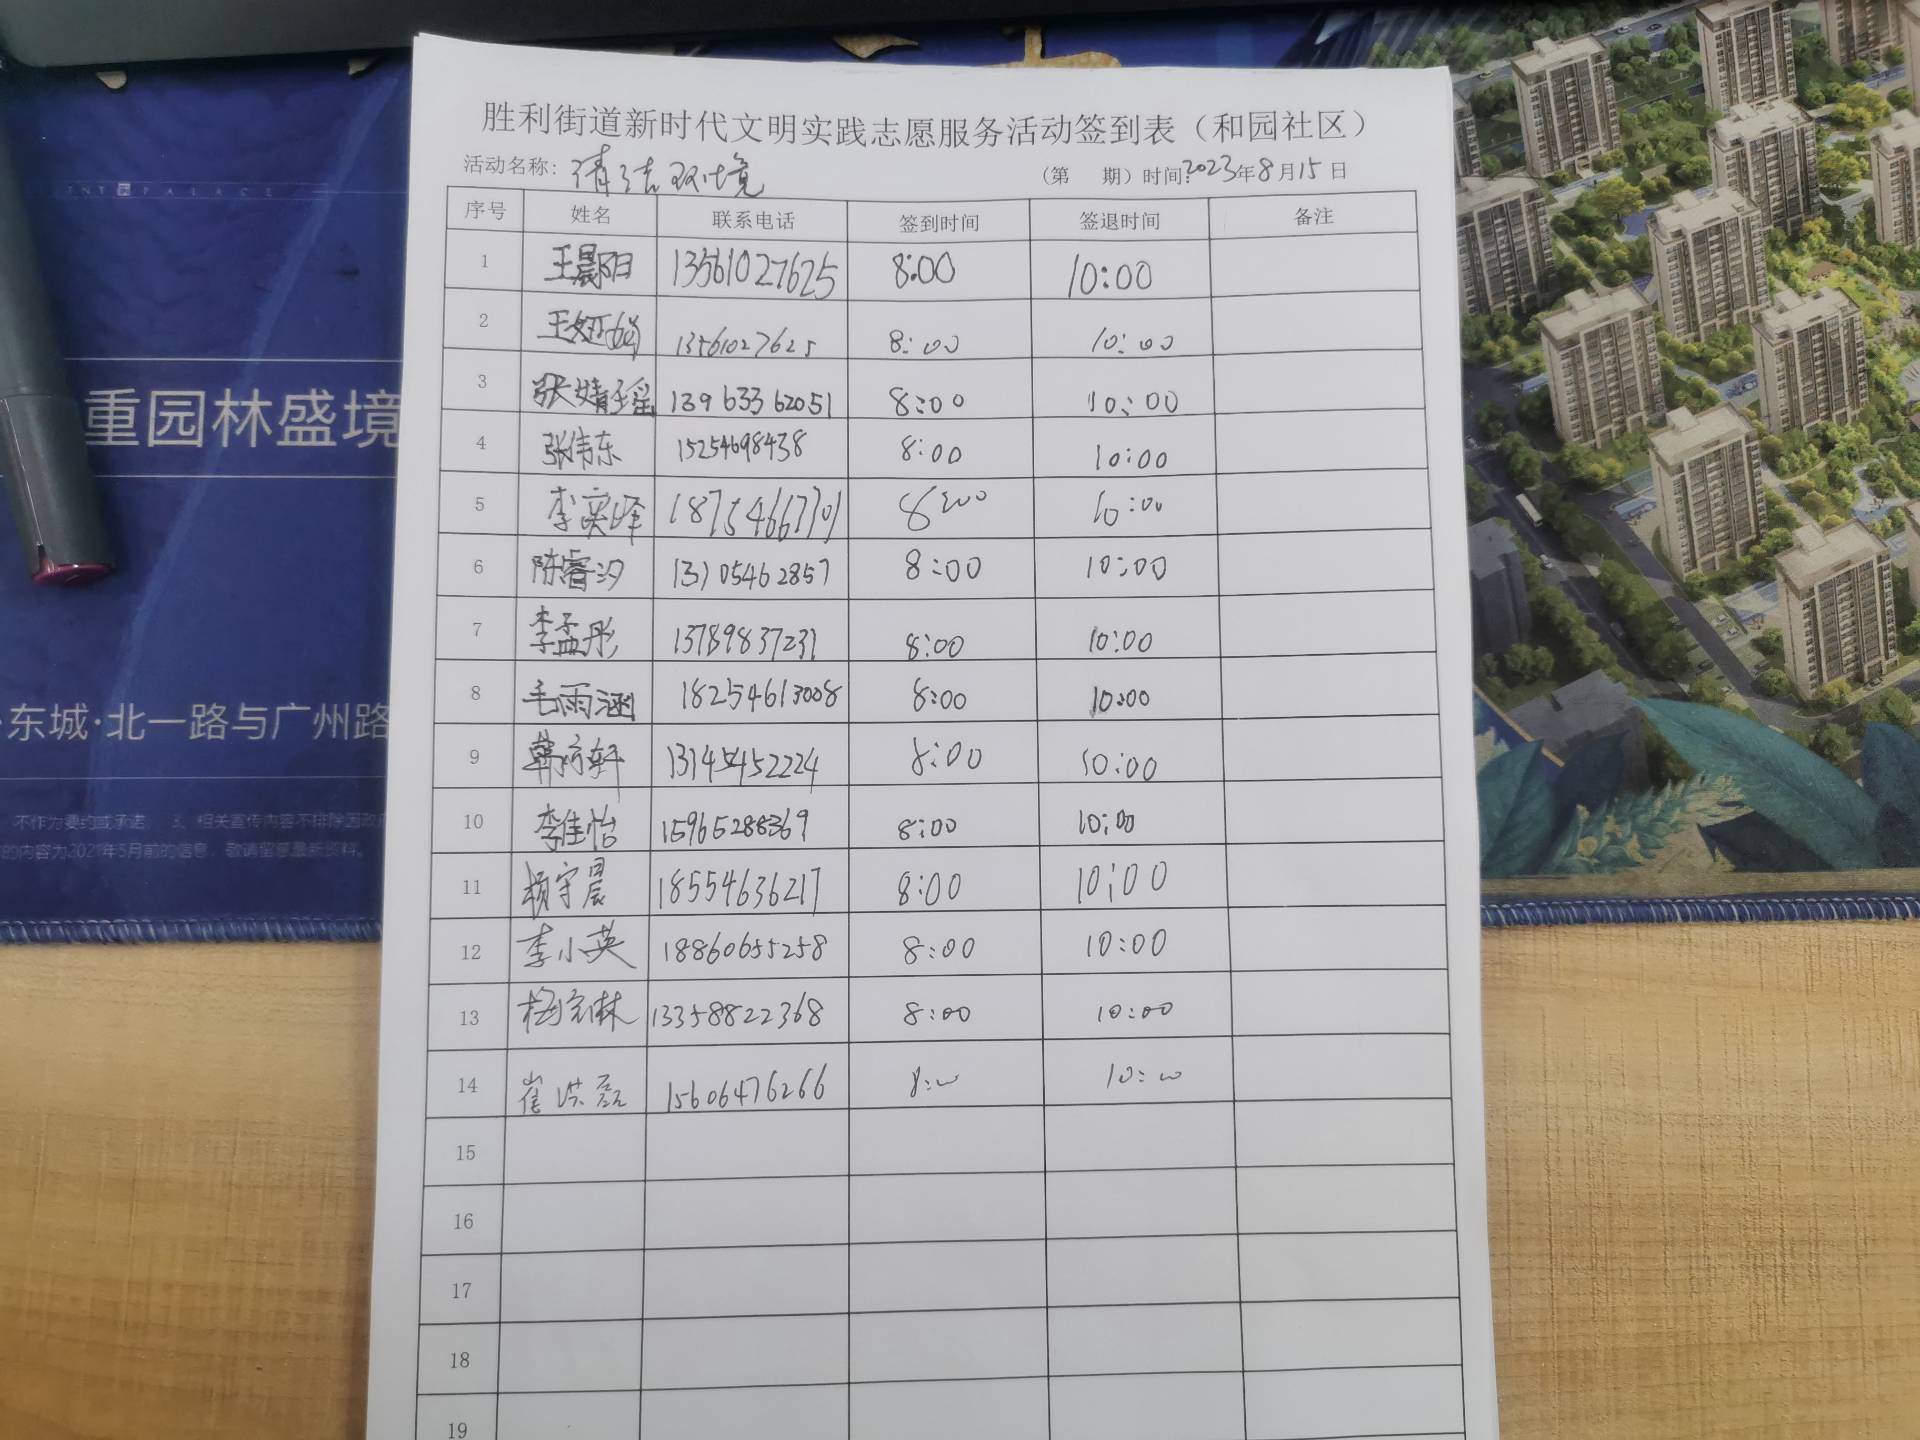 胜利街道新时代文明实践志愿服务活动签到表（和园社区）
活动名称：清洁环境 （第 期）时间：2023年8月15日
序号 姓名 联系电话 签到时间 签退时间 备注
1 王晨阳 13561027625 8:00 10:00
2 王娅婻 13561027625 8:00 10:00
3 张婧瑶 13963362051 8:00 10:00
4 张伟东 15254698438 8:00 10:00
5 李奕峄 18754667701 8:00 10:00
6 陈睿汐 13105462857 8:00 10:00
7 李孟彤 13789837231 8:00 10:00
8 毛雨涵 18254613008 8:00 10:00
9 韩轩 13145452224 8:00 10:00
10 李佳怡 15965288369 8:00 10:00
11 杨宇晨 18554636217 8:00 10:00
12 李小英 18860655258 8:00 10:00
13 梅林 13358822368 8:00 10:00
14 崔洪磊 15606476266 8:00 10:00
15
16
17
18
19
PALACE
重园林盛境
·东城·北一路与广州路
不作为要约或承诺； 3、相关宣传内容不排除因政府
的内容为2021年5月前的信息，敬请留意最新资料。